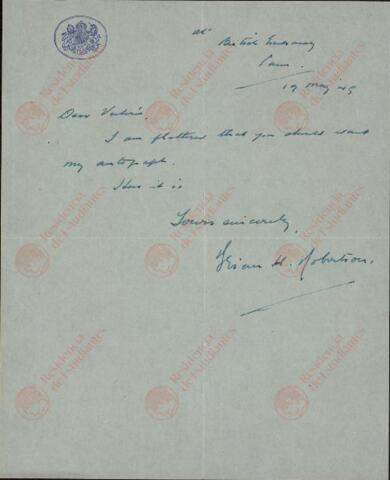 at
British Embassy
Paris.
19 May 49
Dear Valerie.
I am flattered that you should want
my autograph.
Here it is
Yours sincerely,
Brian H. Robertson.
Residencia
de Estudiantes
Residencia
de Estudiantes
Residencia
de Estudiantes
Residencia
de Estudiantes
Residencia
de Estudiantes
Residencia
de Estudiantes
Residencia
de Estudiantes
Residencia
de Estudiantes
Residencia
de Estudiantes
Residencia
de Estudiantes
Residencia
de Estudiantes
Residencia
de Estudiantes